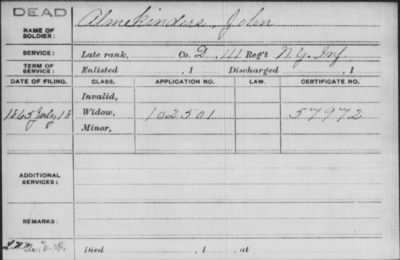 DEAD
NAME OF SOLDIER: Almekinders, John
SERVICE: Late rank, Co. D, 111 Reg't N.Y. Inf.
TERM OF SERVICE: Enlisted , 1 Discharged , 1
DATE OF FILING. CLASS. APPLICATION NO. LAW. CERTIFICATE NO.
Invalid,
1865 July 18 Widow, 102501 57972
Minor,
ADDITIONAL SERVICES:
REMARKS:
Died , 1 , at